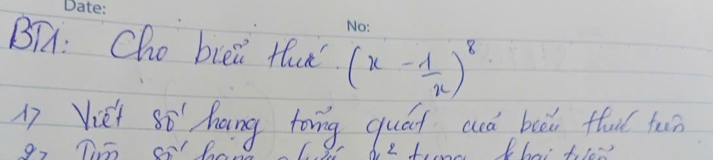 Date:
No:
BT1: Cho biểu thức (x - 1/x)^8
1> Viết số hạng tổng quát của biểu thức trên
2> Tìm số hạng chứa x² trong khai triển